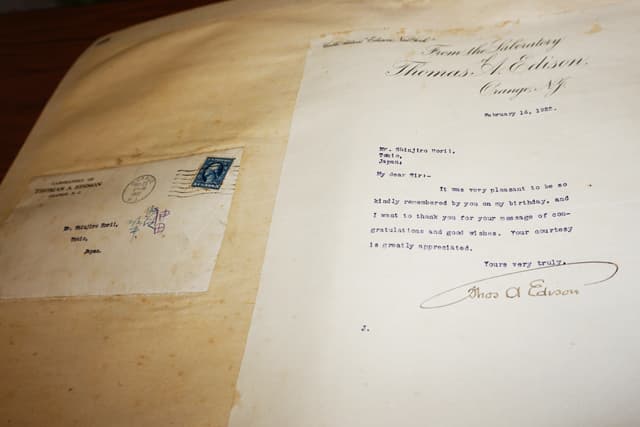 LABORATORY OF
THOMAS A EDISON
ORANGE, N.J.
Mr. Shinjiro Horii,
Tokio,
Japan.
Cable address "Edison, New York"
From the Laboratory
of
Thomas A. Edison,
Orange, N.J.
February 16, 1922.
Mr. Shinjiro Horii,
Tokio,
Japan.
My dear Sir:-
It was very pleasant to be so
kindly remembered by you on my birthday, and
I want to thank you for your message of con-
gratulations and good wishes. Your courtesy
is greatly appreciated.
Yours very truly,
Thos A Edison
J.